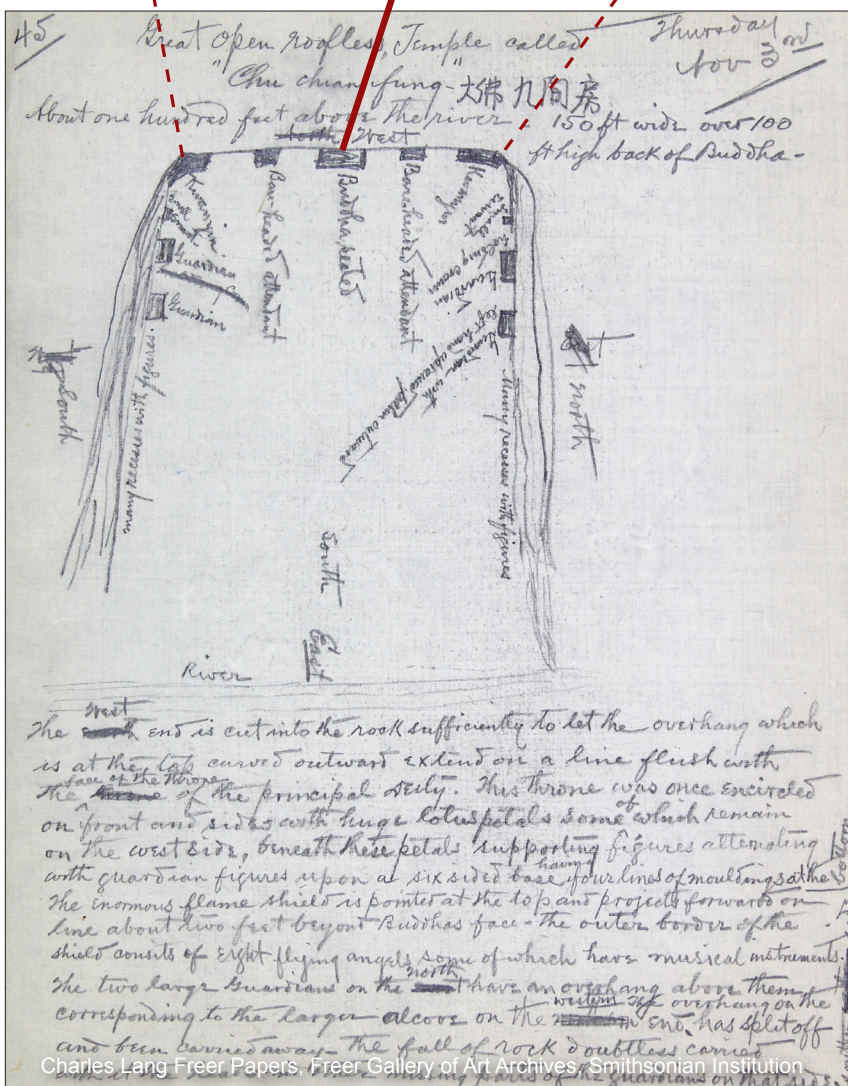 45
Great open roofless Temple called
Thursday
Nov 3rd
"Chu chian fung - 大佛九間房
About one hundred feet above the river - 150 ft wide over 100
ft high back of Buddha -
West
Kwanyin
Bare-headed attendant
Buddha seated
Bareheaded attendant
Guardian
Guardian
Guardian
Guardian with
left hand upraised palm outward
many recesses with figures.
Many recesses with figures
South
north
South
East
River
The West end is cut into the rock sufficiently to let the overhang which
is at the top curved outward extend on a line flush with
the face of the throne of the principal deity. This throne was once encircled
on front and sides with huge lotus petals some of which remain
on the west side, beneath these petals supporting figures alternating
with guardian figures upon a six sided base having four lines of mouldings at the
bottom
The enormous flame shield is pointed at the top and projects forward on
line about two feet beyond Buddhas face - the outer border of the
shield consits of eight flying angels some of which have musical instruments.
The two large Guardians on the north have an overhang above them
corresponding to the larger alcove on the western end. overhang on the
has split off
and been carried away - the fall of rock doubtless carried
missing parts of the guardians on the
Charles Lang Freer Papers, Freer Gallery of Art Archives, Smithsonian Institution